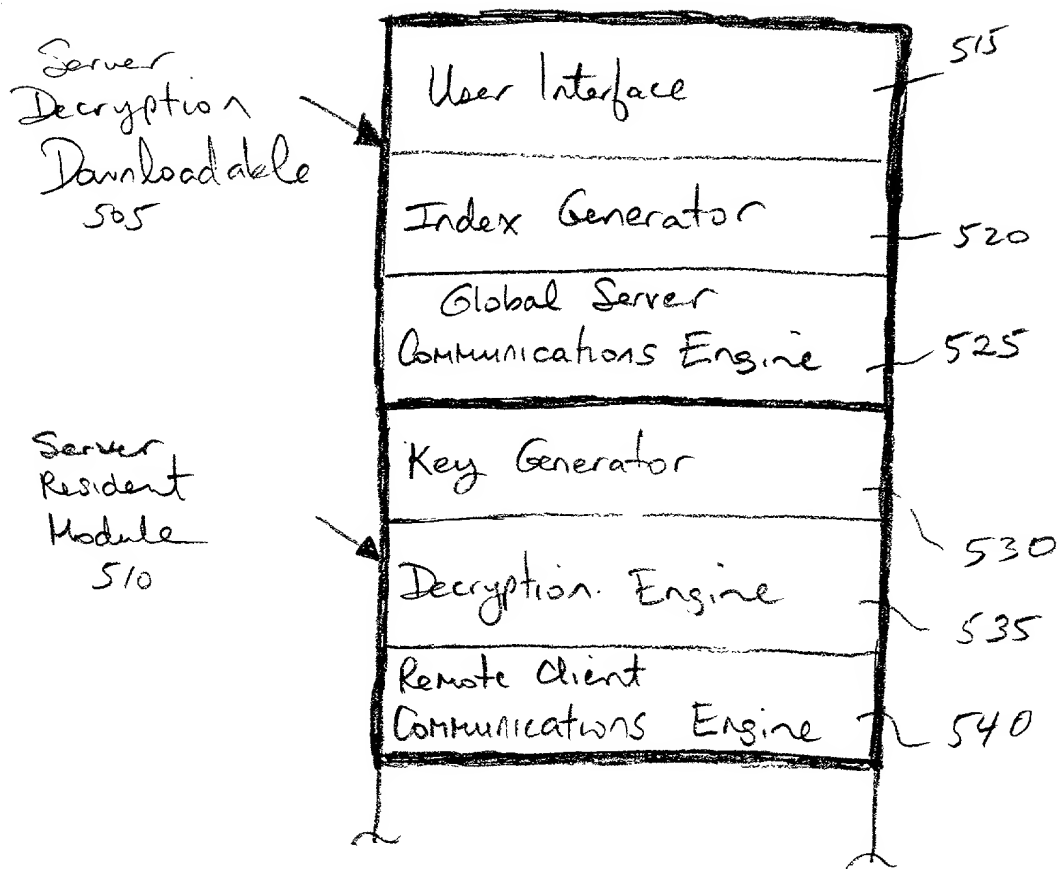 Server
Decryption
Downloadable
505
User Interface
515
Index Generator
520
Global Server
Communications Engine
525
Server
Resident
Module
510
Key Generator
530
Decryption Engine
535
Remote Client
Communications Engine
540